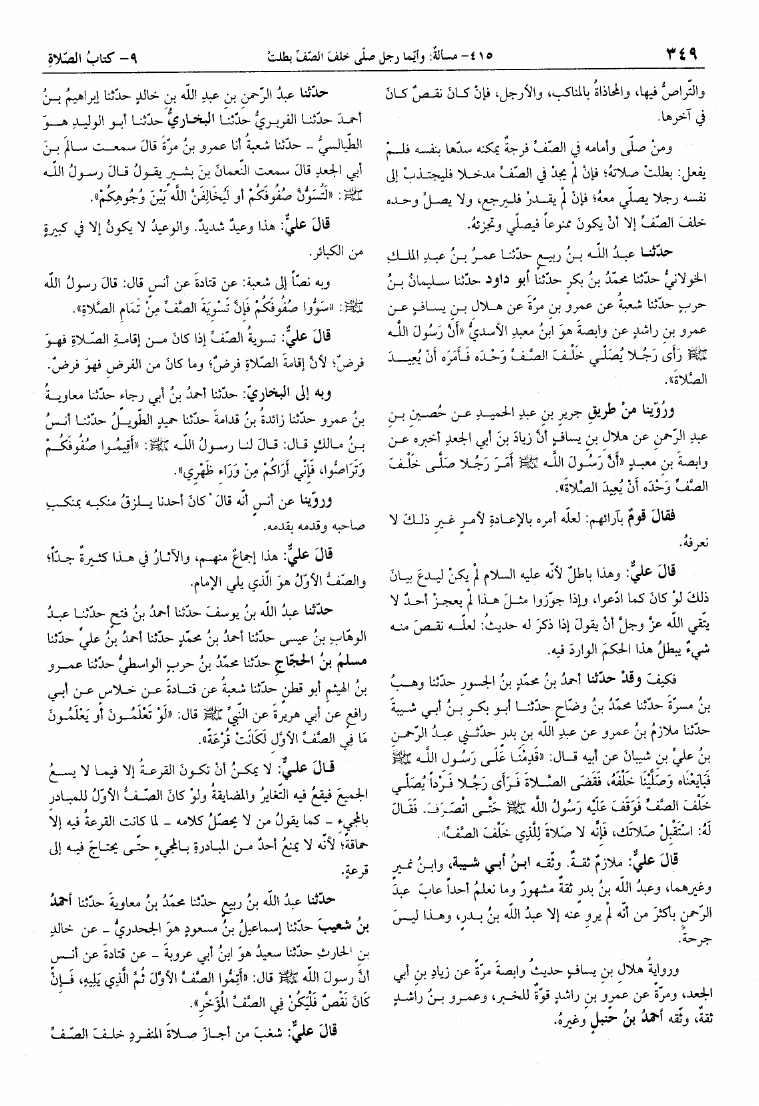 ٣٤٩
٤١٥- مسألةٌ: وأيّما رجل صلّى خلفَ الصّفِّ بطلتْ
٩- كتابُ الصّلاةِ
والتّراصُّ فيها، والمحاذاةُ بالمناكب، والأرجل، فإنْ كـانَ نقـصٌ كـانَ
في آخرها.
ومنْ صلّى وأمامه في الصّفّ فرجةٌ يمكنه سدّها بنفسه فلـمْ
يفعل: بطلتْ صلاتهُ؛ فإنْ لم يجدْ في الصّفّ مدخـلا فليجتـذبْ إلى
نفسه رجلا يصلّي معهُ؛ فإنْ لم يقـدرْ فلـيرجع، ولا يصـلِّ وحـده
خلفَ الصّفّ إلا أنْ يكونَ ممنوعاً فيصلّي وتجزئهُ.
حدّثنـا عبـدُ اللـه بـنُ ربيـع حدّثنـا عمـرُ بـنُ عبـدِ الملـكِ
الخولانيُّ حدّثنا محمّدُ بنُ بكرٍ حدّثنا أبو داود حدّثنا سليمانُ بـنُ
حربٍ حدّثنا شعبةُ عن عمرِو بنِ مرّةَ عن هـلالِ بـنِ يسـافٍ عـن
عمرِو بنِ راشدٍ عن وابصةَ هوَ ابنُ معبدٍ الأسديُّ «أَنَّ رَسُولَ اللَّـه
ﷺ رَأَى رَجُـلا يُصَلِّـي خَلْـفَ الصَّـفِّ وَحْـدَه فَـأَمَرَه أَنْ يُعِيـدَ
الصَّلاةَ».
ورُوّينا منْ طريقِ جريرِ بنِ عبدِ الحميـدِ عـن حُصَـينِ بـنِ
عبدِ الرّحمنِ عن هلالِ بنِ يسافٍ أنَّ زيادَ بنَ أبي الجعدِ أخبره عـن
وابصةَ بنِ معبـدٍ «أَنَّ رَسُولَ اللَّهِ ﷺ أَمَرَ رَجُـلا صَلَّـى خَلْـفَ
الصَّفِّ وَحْدَه أَنْ يُعِيدَ الصَّلاةَ».
فقالَ قومٌ بآرائهم: لعلّه أمره بالإعادةِ لأمـرٍ غـيرِ ذلـكَ لا
نعرفهُ.
قالَ عليٌّ: وهذا باطلٌ لأنّه عليه السلام لم يكنْ ليـدعَ بيـانَ
ذلكَ لوْ كانَ كما ادّعوا، وإذا جوّزوا مثـلَ هـذا لم يعجـزْ أحـدٌ لا
يتّقي الله عزّ وجلّ أنْ يقولَ إذا ذكرَ له حديثٌ: لعلّـه نقـصَ منـه
شيءٌ يبطلُ هذا الحكمَ الواردَ فيه.
فكيفَ وقدْ حدّثنا أحمدُ بنُ محمّدِ بنُ الجسورِ حدّثنا وهـبُ
بنُ مسرّةَ حدّثنا محمّدُ بنُ وضّاحٍ حدّثنـا أبـو بكـرِ بـنُ أبـي شـيبةَ
حدّثنا ملازمُ بنُ عمرٍو عن عبدِ الله بنِ بدرٍ حدّثـني عبـدُ الرّحمـنِ
بنُ عليِّ بنِ شيبانَ عن أبيه قـالَ: «قَدِمْنَـا عَلَـى رَسُـولِ اللـهِ ﷺ
فَبَايَعْنَاه وَصَلَّيْنَا خَلْفَهُ، فَقَضَى الصَّـلاةَ فَـرَأَى رَجُـلا فَـرْداً يُصَلِّي
خَلْفَ الصَّفِّ فَوَقَفَ عَلَيْهِ رَسُولُ اللَّهِ ﷺ حَتَّـى انْصَـرَفَ. فَقَـالَ
لَهُ: اسْتَقْبِلْ صَلاتَكَ، فَإِنَّه لا صَلاةَ لِلَّذِي خَلْفَ الصَّفِّ».
قالَ عليٌّ: ملازمٌ ثقـةٌ. وثّقـه ابـنُ أبـي شـيبةَ، وابـنُ نمـيرٍ
وغيرهمـا، وعبدُ الله بنُ بدرٍ ثقةٌ مشهورٌ وما نعلـمُ أحداً عابَ عبدَ
الرّحمنِ بأكثرَ من أنّه لم يروِ عنه إلا عبدُ الله بنُ بـدرٍ، وهـذا ليـسَ
جرحةً.
وروايةُ هلالِ بنِ يسافٍ حديثُ وابصةَ مرّةً عن زيادِ بنِ أبي
الجعد، ومرّةً عن عمرِو بنِ راشدٍ قوّةٌ للخبر، وعمـرو بـنُ راشـدٍ
ثقةٌ، وثّقه أحمدُ بنُ حنبلٍ وغيرهُ.
حدّثنا عبدُ الرّحمنِ بنِ عبدِ اللّه بنِ خالدٍ حدّثنا إبراهيمُ بـنُ
أحمدَ حدّثنـا الفربـريُّ حدّثنـا البخـاريُّ حدّثنـا أبـو الوليـدِ هـوَ
الطّيالسيُّ - حدّثنا شعبةُ أنا عمرو بنُ مرّةَ قالَ سمعـت سـالمَ بـنَ
أبي الجعدِ قالَ سمعت النّعمانَ بنَ بشـيرٍ يقـولُ قـالَ رسـولُ اللـه
ﷺ: «لَتُسَوُّنَّ صُفُوفَكُمْ أو لَيُخَالِفَنَّ اللَّه بَيْنَ وُجُوهِكُمْ».
قالَ عليٌّ: هذا وعيدٌ شديدٌ. والوعيدُ لا يكونُ إلا في كبيرةٍ
من الكبائر.
وبه نصّاً إلى شعبةَ: عن قتادةَ عن أنسٍ قال: قالَ رسولُ الله
ﷺ: «سَوُّوا صُفُوفَكُمْ فَإِنَّ تَسْوِيَةَ الصَّفِّ مِنْ تَمَامِ الصَّلاةِ».
قالَ عليٌّ: تسويةُ الصّفِّ إذا كانَ مـن إقامـةِ الصّـلاةِ فهـوَ
فرضٌ؛ لأنَّ إقامةَ الصّلاةِ فرضٌ؛ وما كانَ من الفرضِ فهوَ فرضٌ.
وبه إلى البخاريّ: حدّثنا أحمدُ بنُ أبي رجاء حدّثنا معاويـةُ
بنُ عمرٍو حدّثنا زائدةُ بنُ قدامةَ حدّثنا حميدٍ الطّويـلُ حدّثنـا أنـسُ
بـنُ مـالكٍ قـال: قـالَ لنـا رسـولُ اللـه ﷺ: «أَقِيمُـوا صُفُوفَكُـمْ
وَتَرَاصُّوا، فَإِنِّي أَرَاكُمْ مِنْ وَرَاءِ ظَهْرِي».
وروّينا عن أنسٍ أنّه قالَ كانَ أحدنا يـلزقُ منكبـه بمنكـبِ
صاحبه وقدمه بقدمه.
قالَ عليٌّ: هذا إجماعٌ منهـم، والآثـارُ في هـذا كثـيرةٌ جـدّاً؛
والصّفُّ الأوّلُ هوَ الّذي يلي الإمام.
حدّثنا عبدُ الله بنُ يوسفَ حدّثنا أحمدُ بنُ فتحٍ حدّثنـا عبـدُ
الوهّابِ بنُ عيسى حدّثنا أحمدُ بنُ محمّدٍ حدّثنا أحمدُ بنُ عليٍّ حدّثنا
مسلمُ بنُ الحجّاجِ حدّثنا محمّدُ بنُ حربٍ الواسطيُّ حدّثنا عمـرو
بنُ الهيثمِ أبو قطنٍ حدّثنا شعبةُ عن قتـادةَ عـن خـلاسٍ عـن أبـي
رافعٍ عن أبي هريرةَ عن النّبيِّ ﷺ قال: «لَوْ تَعْلَمُـونَ أو يَعْلَمُـونَ
مَا فِي الصَّفِّ الأَوَّلِ لَكَانَتْ قُرْعَةً».
قـالَ علـيٌّ: لا يمكـنُ أنْ تكـونَ القرعـةُ إلا فيمـا لا يسـعُ
الجميعَ فيقعُ فيه التّغايرُ والمضايقةُ ولوْ كانَ الصّـفُّ الأوّلُ للمبـادرِ
بالمجيءِ - كما يقولُ من لا يحصّلُ كلامه - لما كانت القرعةُ فيه إلا
حماقةً؛ لأنّه لا يمنعُ أحدٌ مـن المبـادرةِ بـالمجيءِ حتّـى يحتـاجَ فيـه إلى
قرعةٍ.
حدّثنا عبدُ الله بنُ ربيعٍ حدّثنا محمّدُ بنُ معاويةَ حدّثنا أحمدُ
بنُ شعيبٍ حدّثنا إسماعيلُ بـنُ مسـعودٍ هـوَ الجحدريُّ - عن خالدِ
بنِ الحارثِ حدّثنا سعيدٌ هوَ ابنُ أبي عروبةَ - عن قتادةَ عن أنـسٍ
أنَّ رسولَ الله ﷺ قال: «أَتِمُّوا الصَّفَّ الأَوَّلَ ثُمَّ الَّذِي يَلِيهِ، فَـإِنْ
كَانَ نَقْصٌ فَلْيَكُنْ فِي الصَّفِّ الْمُؤَخَّرِ».
قالَ عليٌّ: شغبَ من أجـازَ صـلاةَ المنفـردِ خلـفَ الصّـفِّ